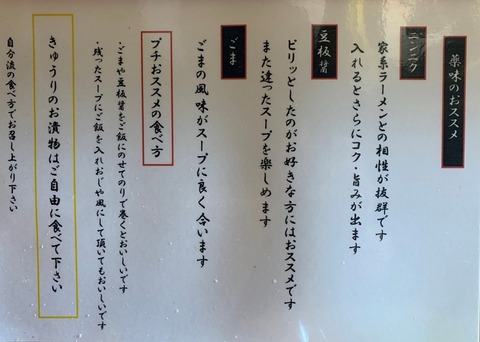 薬味のおススメ
ニンニク
家系ラーメンとの相性が抜群です
入れるとさらにコク・旨みが出ます
豆板醤
ピリッとしたのがお好きな方にはおススメです
また違ったスープを楽しめます
ごま
ごまの風味がスープに良く合います
プチおススメの食べ方
・ごまや豆板醤をご飯にのせてのりで巻くとおいしいです
・残ったスープにご飯を入れおじや風にして頂いてもおいしいです
きゅうりのお漬物はご自由に食べて下さい
自分流の食べ方でお召し上がり下さい